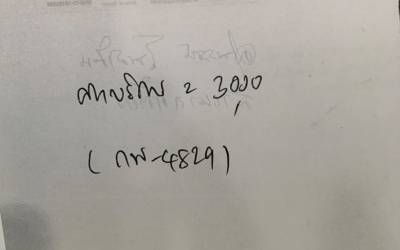 ค่าบริการ = 3,000
(กพ-4829)